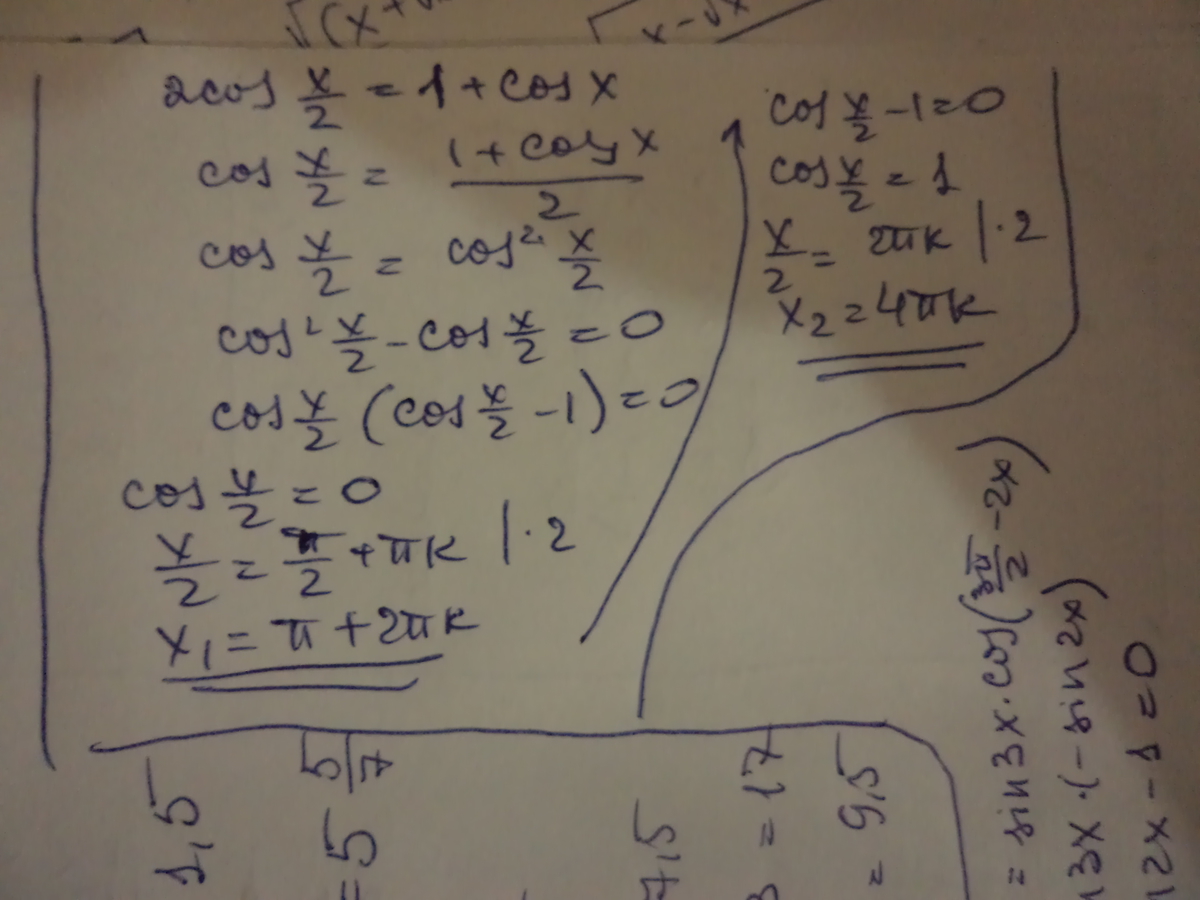 √(x+
√x-√x
2cos x/2 = 1 + cos x
cos x/2 = (1 + cos x)/2
cos x/2 = cos² x/2
cos² x/2 - cos x/2 = 0
cos x/2 (cos x/2 - 1) = 0
cos x/2 = 0
x/2 = π/2 + πk |·2
x₁ = π + 2πk
cos x/2 - 1 = 0
cos x/2 = 1
x/2 = 2πk |·2
x₂ = 4πk
1,5
= 5 5/7
7,5
= 17
= 9,5
= sin3x·cos(3π/2 - 2x)
3x·(-sin2x)
2x - 1 = 0